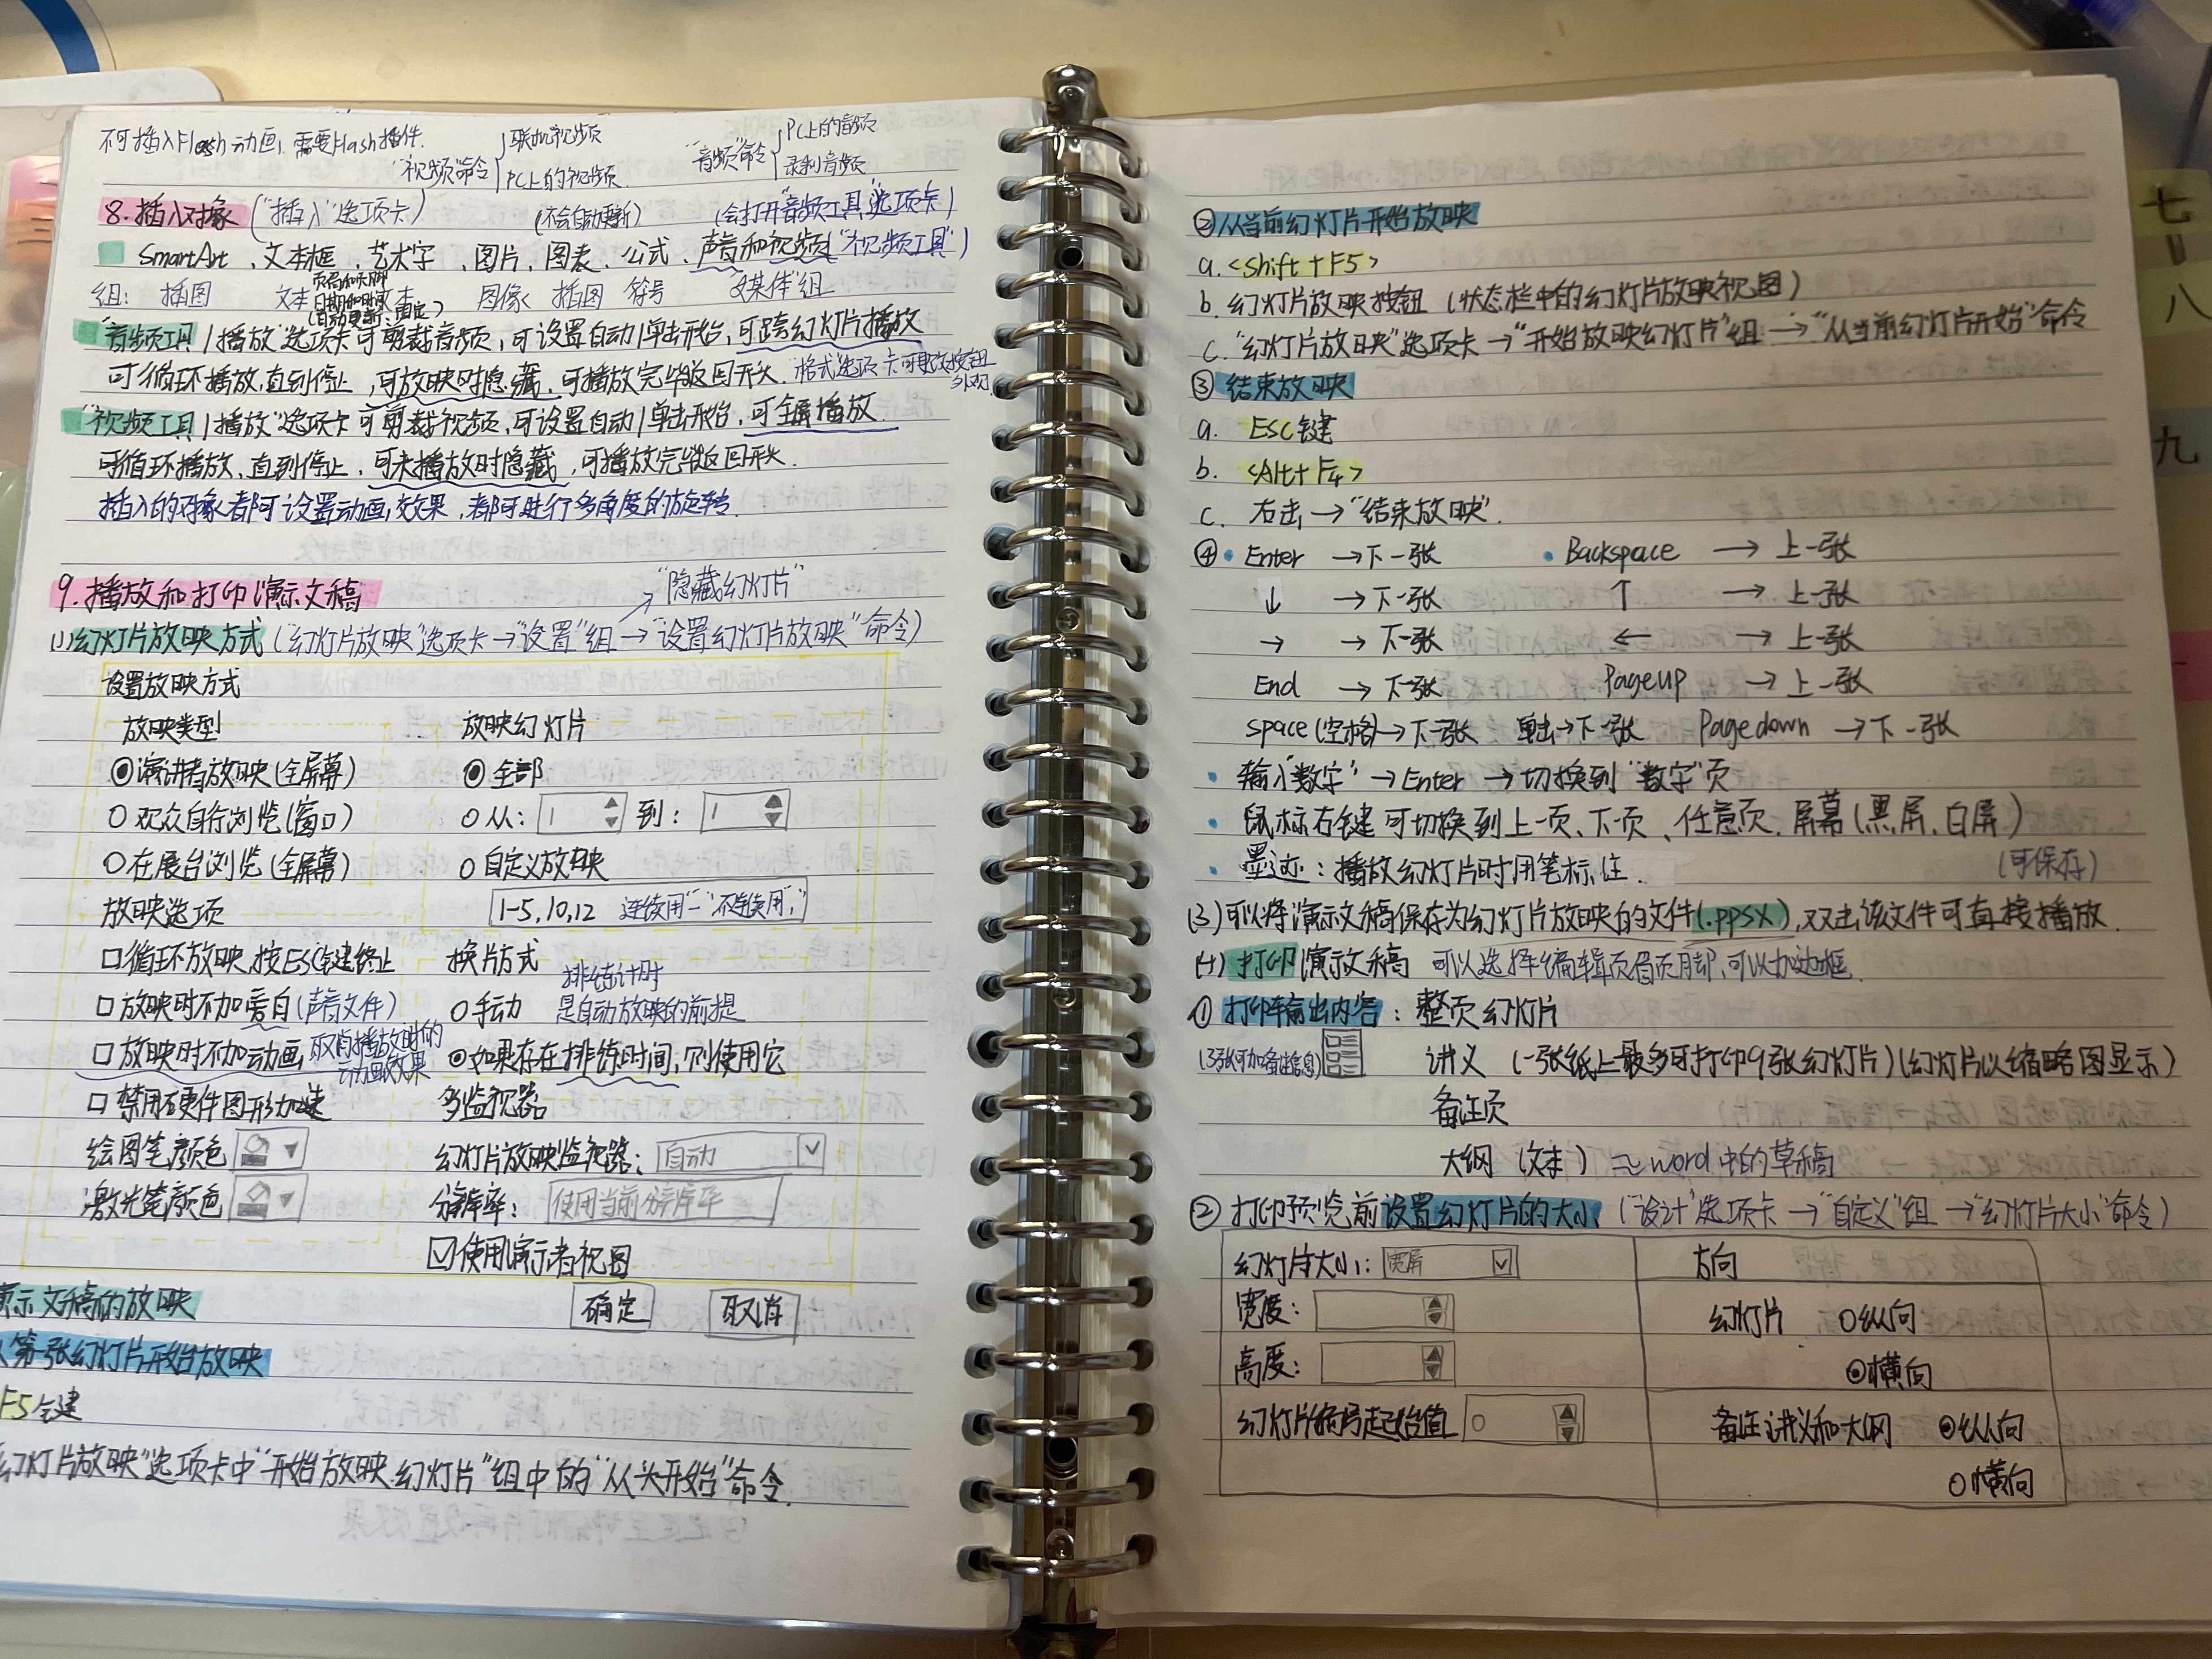 不可插入Flash动画，需要Flash插件.
"视频"命令 { 联机视频
PC上的视频.
"音频"命令 { PC上的音频
录制音频
8.插入对象 ("插入"选项卡)
(不会自动更新)
(会打开"音频工具"选项卡)
SmartArt、文本框、艺术字、图片、图表、公式、声音和视频("视频工具")
组: 插图 文本 文本 图像 插图 符号 "媒体"组
页眉和页脚
日期和时间
(自动更新、固定)
"音频工具|播放"选项卡可剪裁音频,可设置自动|单击开始,可跨幻灯片播放
可循环播放,直到停止,可放映时隐藏,可播放完毕返回开头. "格式"选项卡可更改按钮外观
"视频工具|播放"选项卡可剪裁视频,可设置自动|单击开始,可全屏播放
可循环播放、直到停止,可未播放时隐藏,可播放完毕返回开头.
插入的对象都可设置动画效果,都可进行多角度的旋转.
9.播放和打印演示文稿
"隐藏幻灯片"
(1)幻灯片放映方式("幻灯片放映"选项卡→"设置"组→"设置幻灯片放映"命令)
设置放映方式
放映类型 放映幻灯片
◉演讲者放映(全屏幕) ◉全部
○观众自行浏览(窗口) ○从: 1 到: 1
○在展台浏览(全屏幕) ○自定义放映
放映选项 1-5,10,12 连续用"-"不连续用","
□循环放映,按ESC键终止 换片方式
□放映时不加旁白(声音文件) ○手动 排练计时
是自动放映的前提
□放映时不加动画 取消播放时的动画效果 ◉如果存在排练时间,则使用它
□禁用硬件图形加速 多监视器
绘图笔颜色 幻灯片放映监视器: 自动
激光笔颜色 分辨率: 使用当前分辨率
☑使用演示者视图
演示文稿的放映 确定 取消
第一张幻灯片开始放映
F5键
幻灯片放映"选项卡中"开始放映幻灯片"组中的"从头开始"命令.
②从当前幻灯片开始放映
a.<Shift+F5>
b.幻灯片放映按钮(状态栏中的幻灯片放映视图)
c."幻灯片放映"选项卡→"开始放映幻灯片"组→"从当前幻灯片开始"命令
③结束放映
a. ESC键
b. <Alt+F4>
c. 右击→"结束放映".
④• Enter →下一张 • Backspace → 上一张
↓ →下一张 ↑ → 上一张
→ →下一张 ← → 上一张
End →下一张 Pageup → 上一张
space(空格)→下一张 单击→下一张 Pagedown →下一张
• 输入"数字"→Enter →切换到"数字"页
• 鼠标右键可切换到上一页、下一页、任意页.屏幕(黑屏、白屏)
• 墨迹:播放幻灯片时用笔标注. (可保存)
(3)可以将演示文稿保存为幻灯片放映的文件(.ppsx),双击该文件可直接播放.
(4)打印演示文稿 可以选择编辑页眉页脚,可以加边框.
①打印输出内容:整页幻灯片
(3张可加备注信息) 讲义(一张纸上最多可打印9张幻灯片)(幻灯片以缩略图显示)
备注页
大纲(文本)≈word中的草稿
②打印预览前设置幻灯片的大小("设计"选项卡→"自定义"组→"幻灯片大小"命令)
幻灯片大小: 宽屏 方向
宽度: 幻灯片 ○纵向
高度: ◉横向
幻灯片编号起始值 0 备注讲义和大纲 ◉纵向
○横向
七
八
九